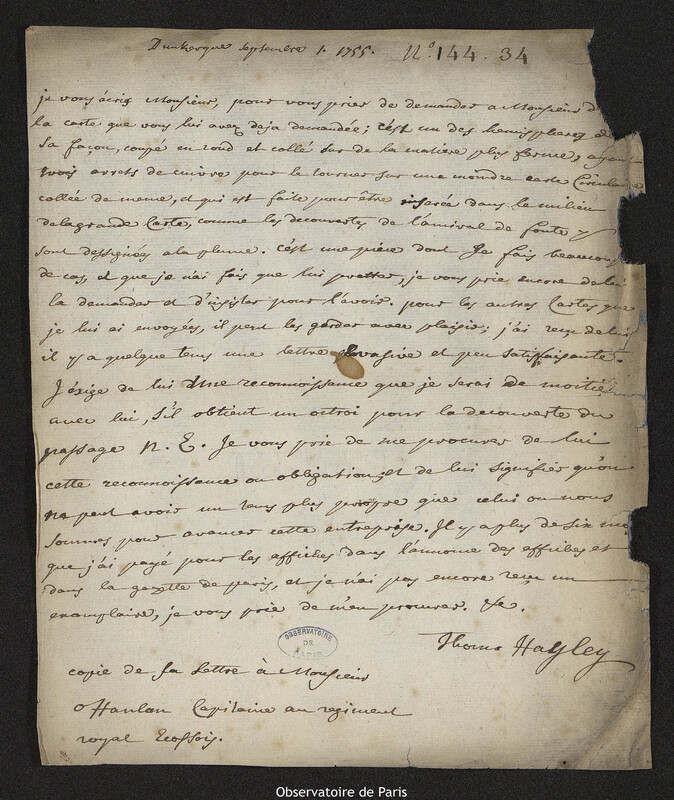 Dunkerque septembre 1. 1755. N.º 144. 34
je vous écris Monsieur, pour vous prier de demander a Monsieur D
la carte que vous lui avez deja demandée; c'est un des hemispheres de
sa façon, coupé en rond et collé sur de la matiere plus ferme, ayant
trois arrets de cuivre pour le tourner sur une moindre carte Circulaire
collée de meme, et qui est faite pour être inserée dans le milieu
delagrande Carte, comme les decouvertes de l'amiral de fonte y
sont dessignées ala plume. c'est une piéce dont Je fais beaucoup
de cas, et que je n'ai fais que lui pretter, je vous prie encore de lui
la demander et d'insister pour l'avoir. pour les autres Cartes que
je lui ai envoyées, il peut les garder avec plaisir; j'ai reçu de lui
il y a quelque tems une lettre Evasive et peu satisfaisante.
J'éxige de lui Une reconnoissance que je serai de moitié
avec lui, s'il obtient un octroi pour la decouverte du
passage N. E. Je vous prie de me procurer de lui
cette reconnoissance ou obligation, et de lui signifier qu'on
ne peut avoir un tems plus propre que celui ou nous
sommes pour avancer cette entreprise. Il y a plus de six mois
que j'ai payé pour les affiches dans l'annonce des affiches et
dans la gazette de paris, et je n'ai pas encore reçu un
exemplaire, je vous prie de m'en procurer. &c.
Thomas Hayley
OBSERVATOIRE
DE
PARIS
copie de sa Lettre à Monsieur
o Hanlan Capitaine au regiment
royal Ecossois.
Observatoire de Paris